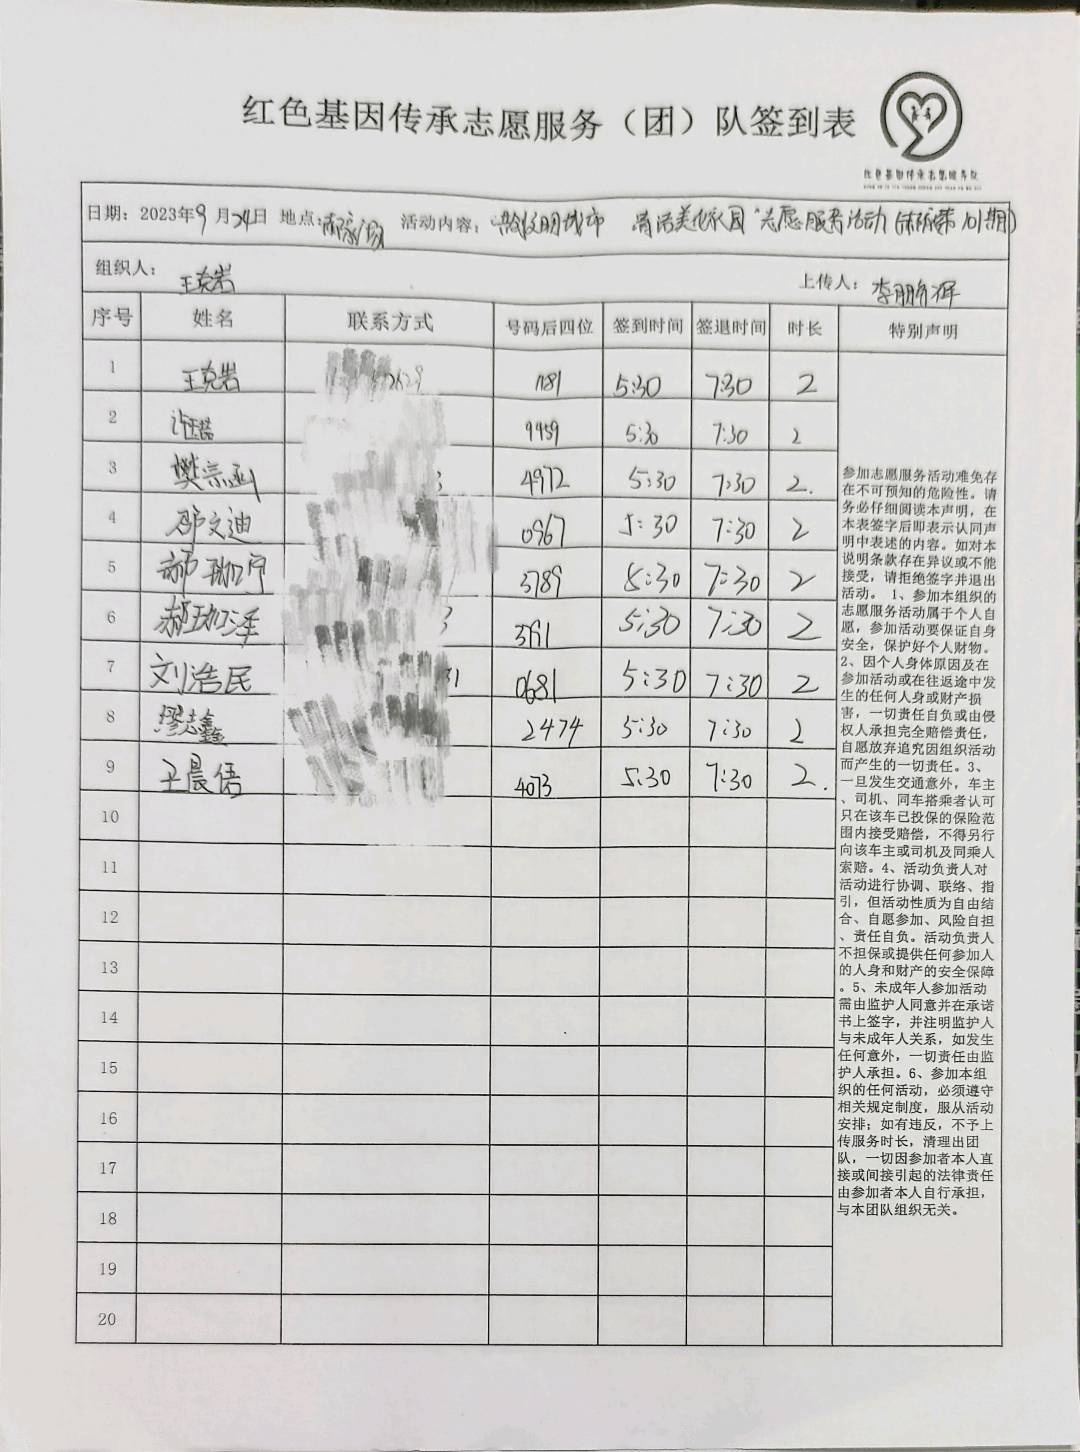 红色基因传承志愿服务（团）队签到表
红色基因传承志愿服务队
日期：2023年9月24日 地点： 活动内容： 文明城市 清洁美化家园"志愿服务活动 第101期)
组织人：王克岩 上传人：李鹏辉
序号 姓名 联系方式 号码后四位 签到时间 签退时间 时长 特别声明
1 王克岩 1181 5:30 7:30 2
2 9459 5:30 7:30 2
3 樊宗函 4972 5:30 7:30 2.
4 邵文迪 0967 5:30 7:30 2
5 郝珈宁 3789 5:30 7:30 2
6 郝珈泽 5:30 7:30 2
7 刘浩民 0681 5:30 7:30 2
8 缪志鑫 2474 5:30 7:30 2
9 王晨语 4073 5:30 7:30 2.
10
11
12
13
14
15
16
17
18
19
20
参加志愿服务活动难免存
在不可预知的危险性。请
务必仔细阅读本声明，在
本表签字后即表示认同声
明中表述的内容。如对本
说明条款存在异议或不能
接受，请拒绝签字并退出
活动。 1、参加本组织的
志愿服务活动属于个人自
愿，参加活动要保证自身
安全，保护好个人财物。
2、因个人身体原因及在
参加活动或在往返途中发
生的任何人身或财产损
害，一切责任自负或由侵
权人承担完全赔偿责任，
自愿放弃追究因组织活动
而产生的一切责任。3、
一旦发生交通意外，车主
、司机、同车搭乘者认可
只在该车已投保的保险范
围内接受赔偿，不得另行
向该车主或司机及同乘人
索赔。4、活动负责人对
活动进行协调、联络、指
引，但活动性质为自由结
合、自愿参加、风险自担
、责任自负。活动负责人
不担保或提供任何参加人
的人身和财产的安全保障
。5、未成年人参加活动
需由监护人同意并在承诺
书上签字，并注明监护人
与未成年人关系，如发生
任何意外，一切责任由监
护人承担。6、参加本组
织的任何活动，必须遵守
相关规定制度，服从活动
安排；如有违反，不予上
传服务时长，清理出团
队，一切因参加者本人直
接或间接引起的法律责任
由参加者本人自行承担，
与本团队组织无关。